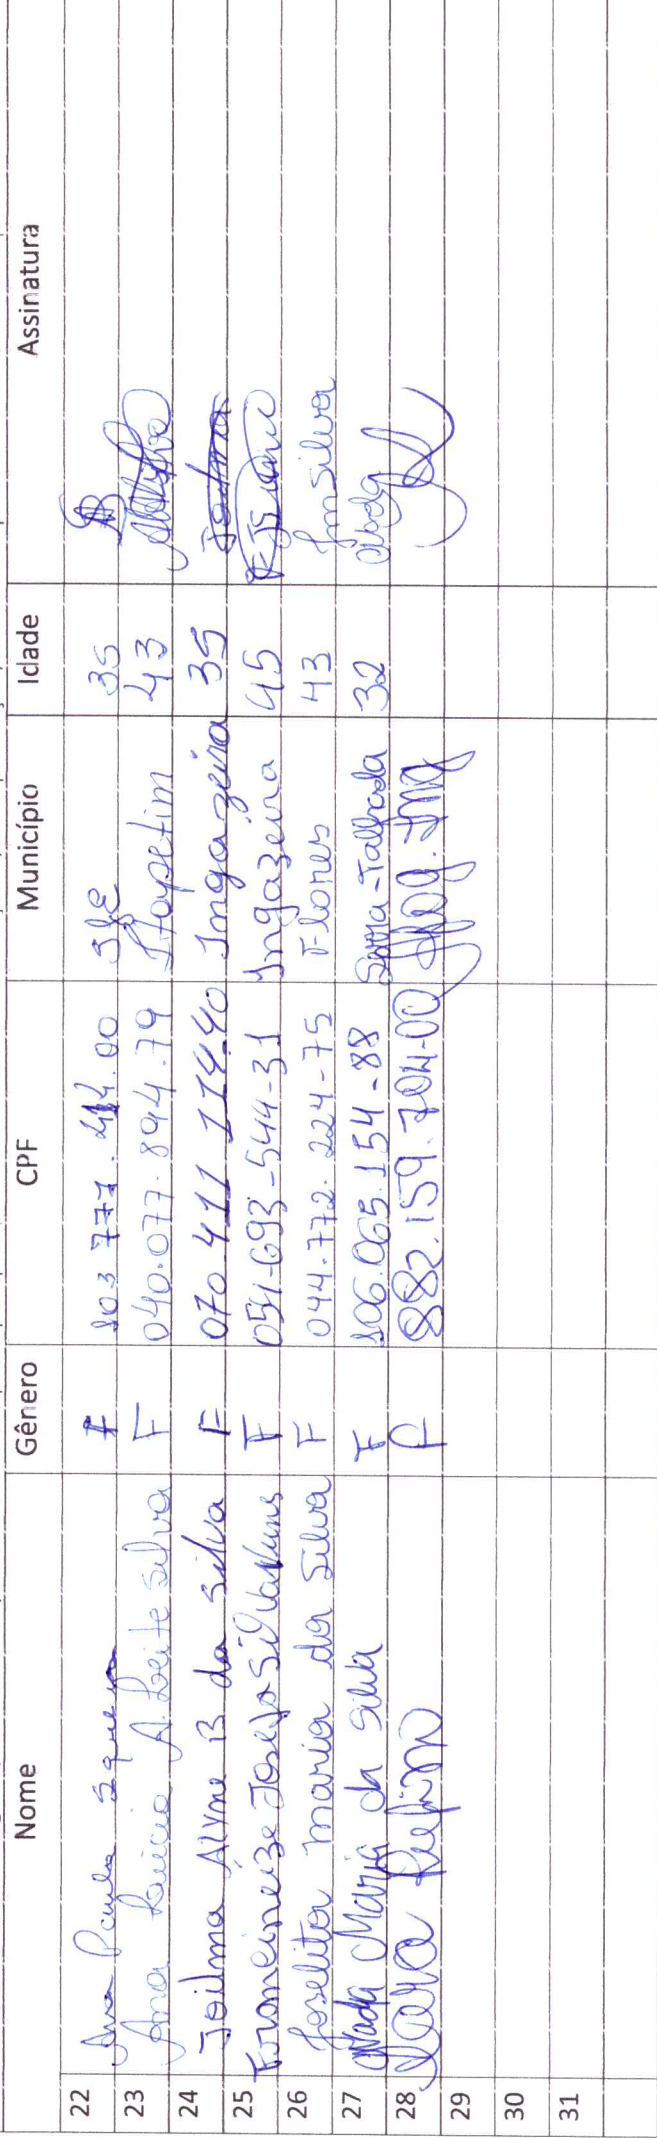 Nome Gênero CPF Município Idade Assinatura
22 Ana Paula F 103 777. 414.00 SJE 35
23 Ana Lucia A. Leite Silva F 040.077.894.79 Itapetim 43
24 Joilma Alyne B da Silva F 070 411 114.40 Ingazeira 35 Joilma
25 F 051-693-544-31 Ingazeira 45
26 Joselita maria da Silva F 044.772.224-75 Flores 43 Jmsilva
27 Maria da Silva F 106.065.154-88 Serra-Talhada 32
28 F 882.159.704-00
29
30
31